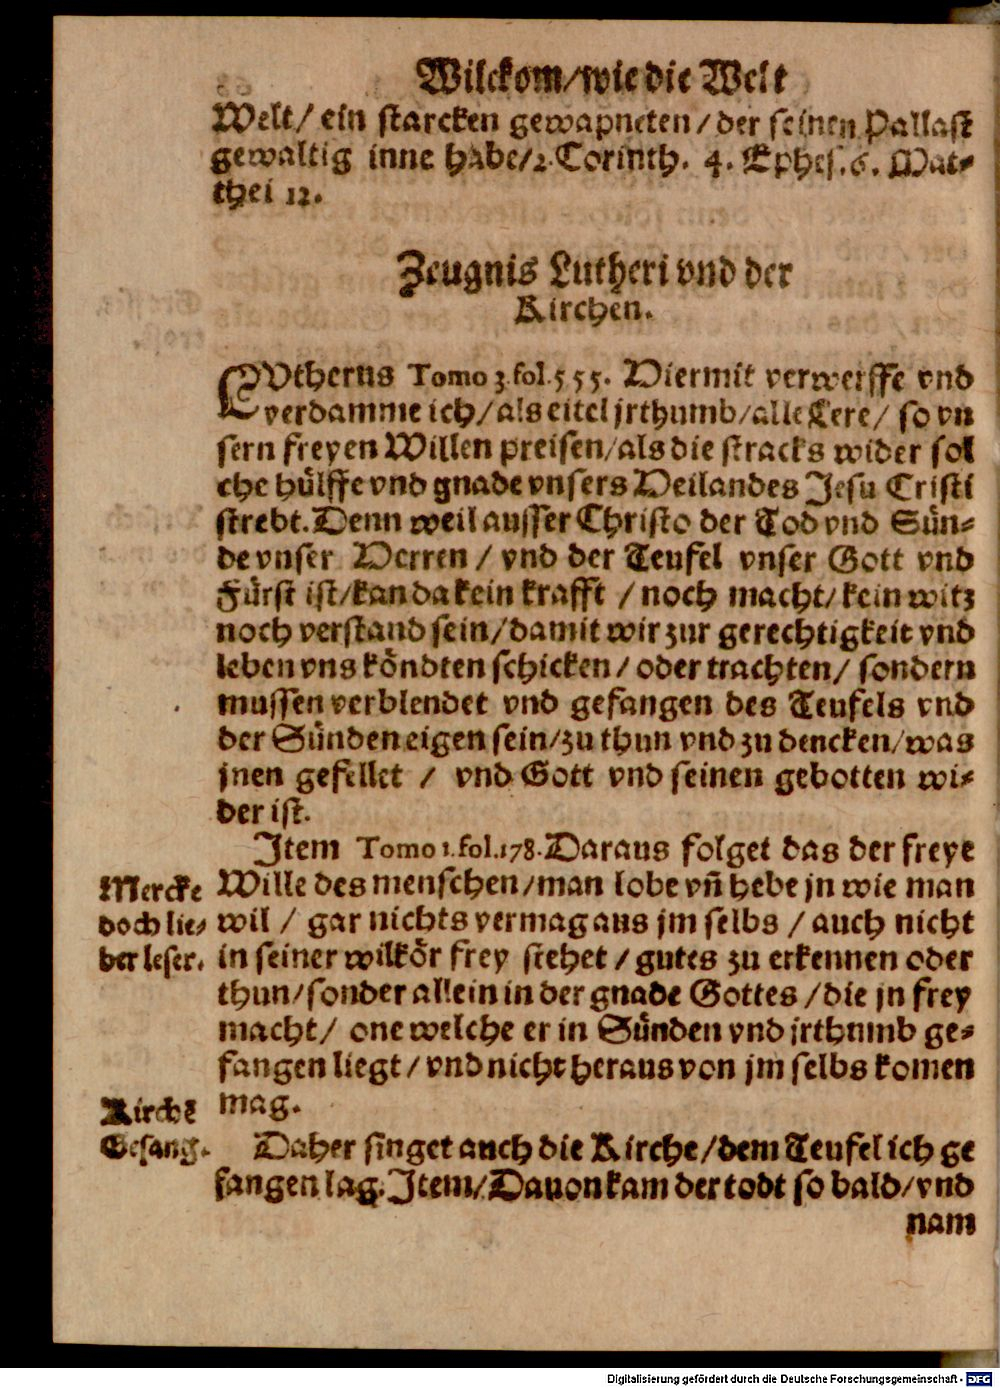 Wilckom/wie die Welt
Welt/ ein starcken gewapneten/der seinen Pallast
gewaltig inne habe/2.Corinth. 4. Ephes.6. Mat-
thei 12.
Zeugnis Lutheri vnd der
Kirchen.
LVtherus Tomo 3.fol.555. Hiermit verwerffe vnd
verdamme ich/als eitel jrthumb/alle Lere/ so vn
sern freyen Willen preisen/als die stracks wider sol
che hülffe vnd gnade vnsers Heilandes Jesu Cristi
strebt.Denn weil ausser Christo der Tod vnd Sün-
de vnser Herren / vnd der Teufel vnser Gott vnd
Fürst ist/kan da kein krafft / noch macht/kein witz
noch verstand sein/damit wir zur gerechtigkeit vnd
leben vns köndten schicken/oder trachten/ sondern
mussen verblendet vnd gefangen des Teufels vnd
der Sünden eigen sein/zu thun vnd zu dencken/was
jnen gefellet / vnd Gott vnd seinen gebotten wi-
der ist.
Item Tomo 1.fol.178.Daraus folget das der freye
Mercke
doch lie-
ber leser.
Wille des menschen/man lobe vñ hebe jn wie man
wil / gar nichts vermag aus jm selbs / auch nicht
in seiner wilkör frey stehet / gutes zu erkennen oder
thun/sonder allein in der gnade Gottes /die jn frey
macht/ one welche er in Sünden vnd jrthumb ge-
fangen liegt/vnd nicht heraus von jm selbs komen
mag.
Kirchē
Gesang.
Daher singet auch die Kirche/dem Teufel ich ge
fangen lag.Item/Dauon kam der todt so bald/vnd
nam
Digitalisierung gefördert durch die Deutsche Forschungsgemeinschaft - DFG